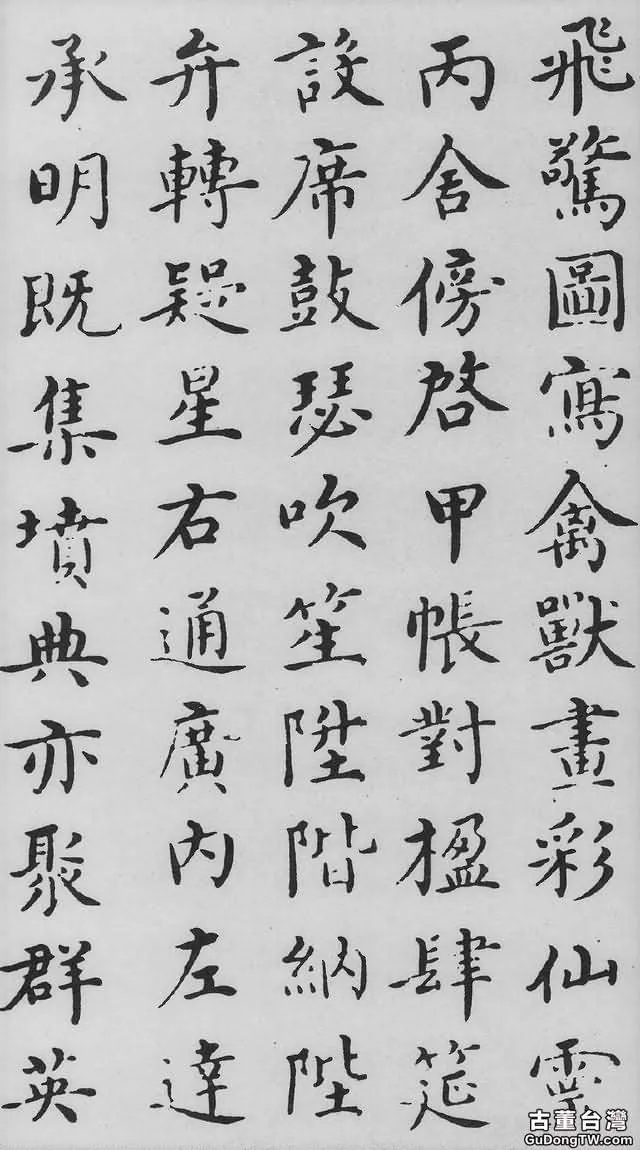 飛驚圖寫禽獸畫彩仙靈
丙舍傍啓甲帳對楹肆筵
設席鼓瑟吹笙陞階納陛
弁轉疑星右通廣内左達
承明既集墳典亦聚群英
古董台灣
GuDongTW.com